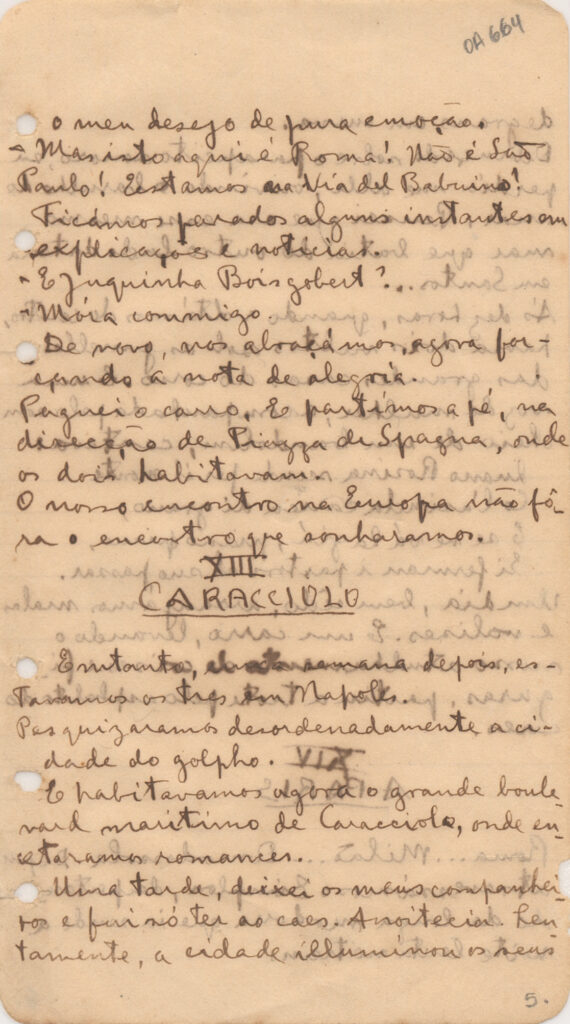 OA 664
o meu desejo de pura emoção.
- Mas isto aqui é Roma! Não é São
Paulo! Estamos na Via del Babuino!
Ficámos parados alguns instantes em
explicações e noticias.
- E Juquinha Boisgobert?...
- Móra commigo.
De novo, nos abraçámos, agora for-
çando a nota de alegria.
Paguei o carro. E partimos a pé, na
direcção de Piazza di Spagna, onde
os dois habitavam.
O nosso encontro na Europa não fô-
ra o encontro que sonharamos.
XIII
CARACCIOLO
Emtanto, semana depois, es-
tavamos os tres em Napoles.
Pesquizaramos desordenadamente a ci-
dade do golpho.
E habitavamos agora o grande boule-
vard maritimo de Caracciolo, onde en-
cetaramos romances.
Uma tarde, deixei os meus companhei-
ros e fui só ter ao caes. Anoitecia. Len-
tamente, a cidade illuminou os seus
5.